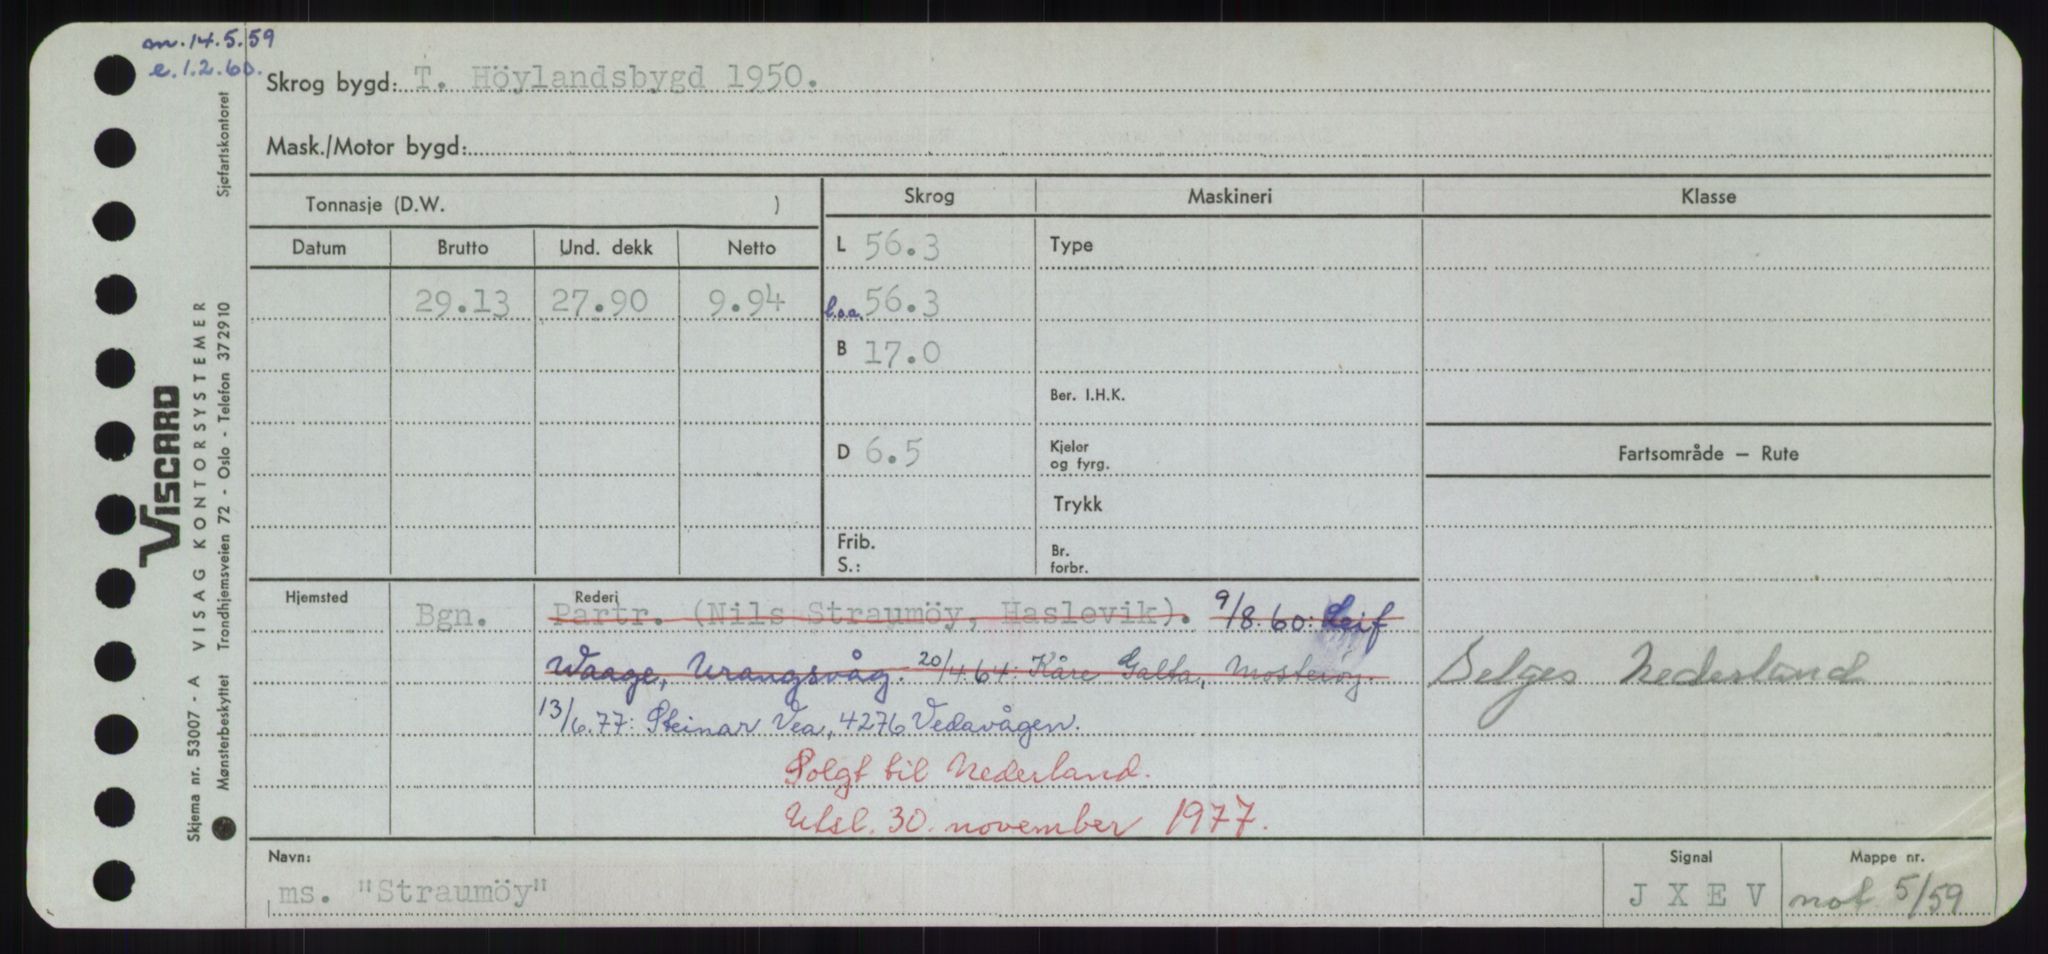 m. 14.5.59
e. 1.2.60.
Skrog bygd: T. Höylandsbygd 1950.
Mask./Motor bygd:
Tonnasje (D.W. )
Skrog Maskineri Klasse
Datum Brutto Und. dekk Netto
L 56.3 Type
29.13 27.90 9.94 l.o.a. 56.3
B 17.0
Ber. I.H.K.
D 6.5 Kjeler og fyrg.
Fartsområde — Rute
Trykk
Frib.
S.:
Br. forbr.
Hjemsted Bgn. Rederi
Partr. (Nils Straumöy, Haslevik). 9/8.60: Leif
Waage, Urangsvåg. 20/4.64: Kåre Galta, Mosterøy.
13/6.77: Steinar Vea, 4276 Vedavågen.
Selges Nederland
Solgt til Nederland.
Utsl. 30. november 1977.
Navn: ms. "Straumöy"
Signal J X E V
Mappe nr. not 5/59
Sjøfartskontoret
VISCARD
VISAG KONTORSYSTEMER
Skjema nr. 53007 - A
Mønsterbeskyttet Trondhjemsveien 72 - Oslo - Telefon 372910